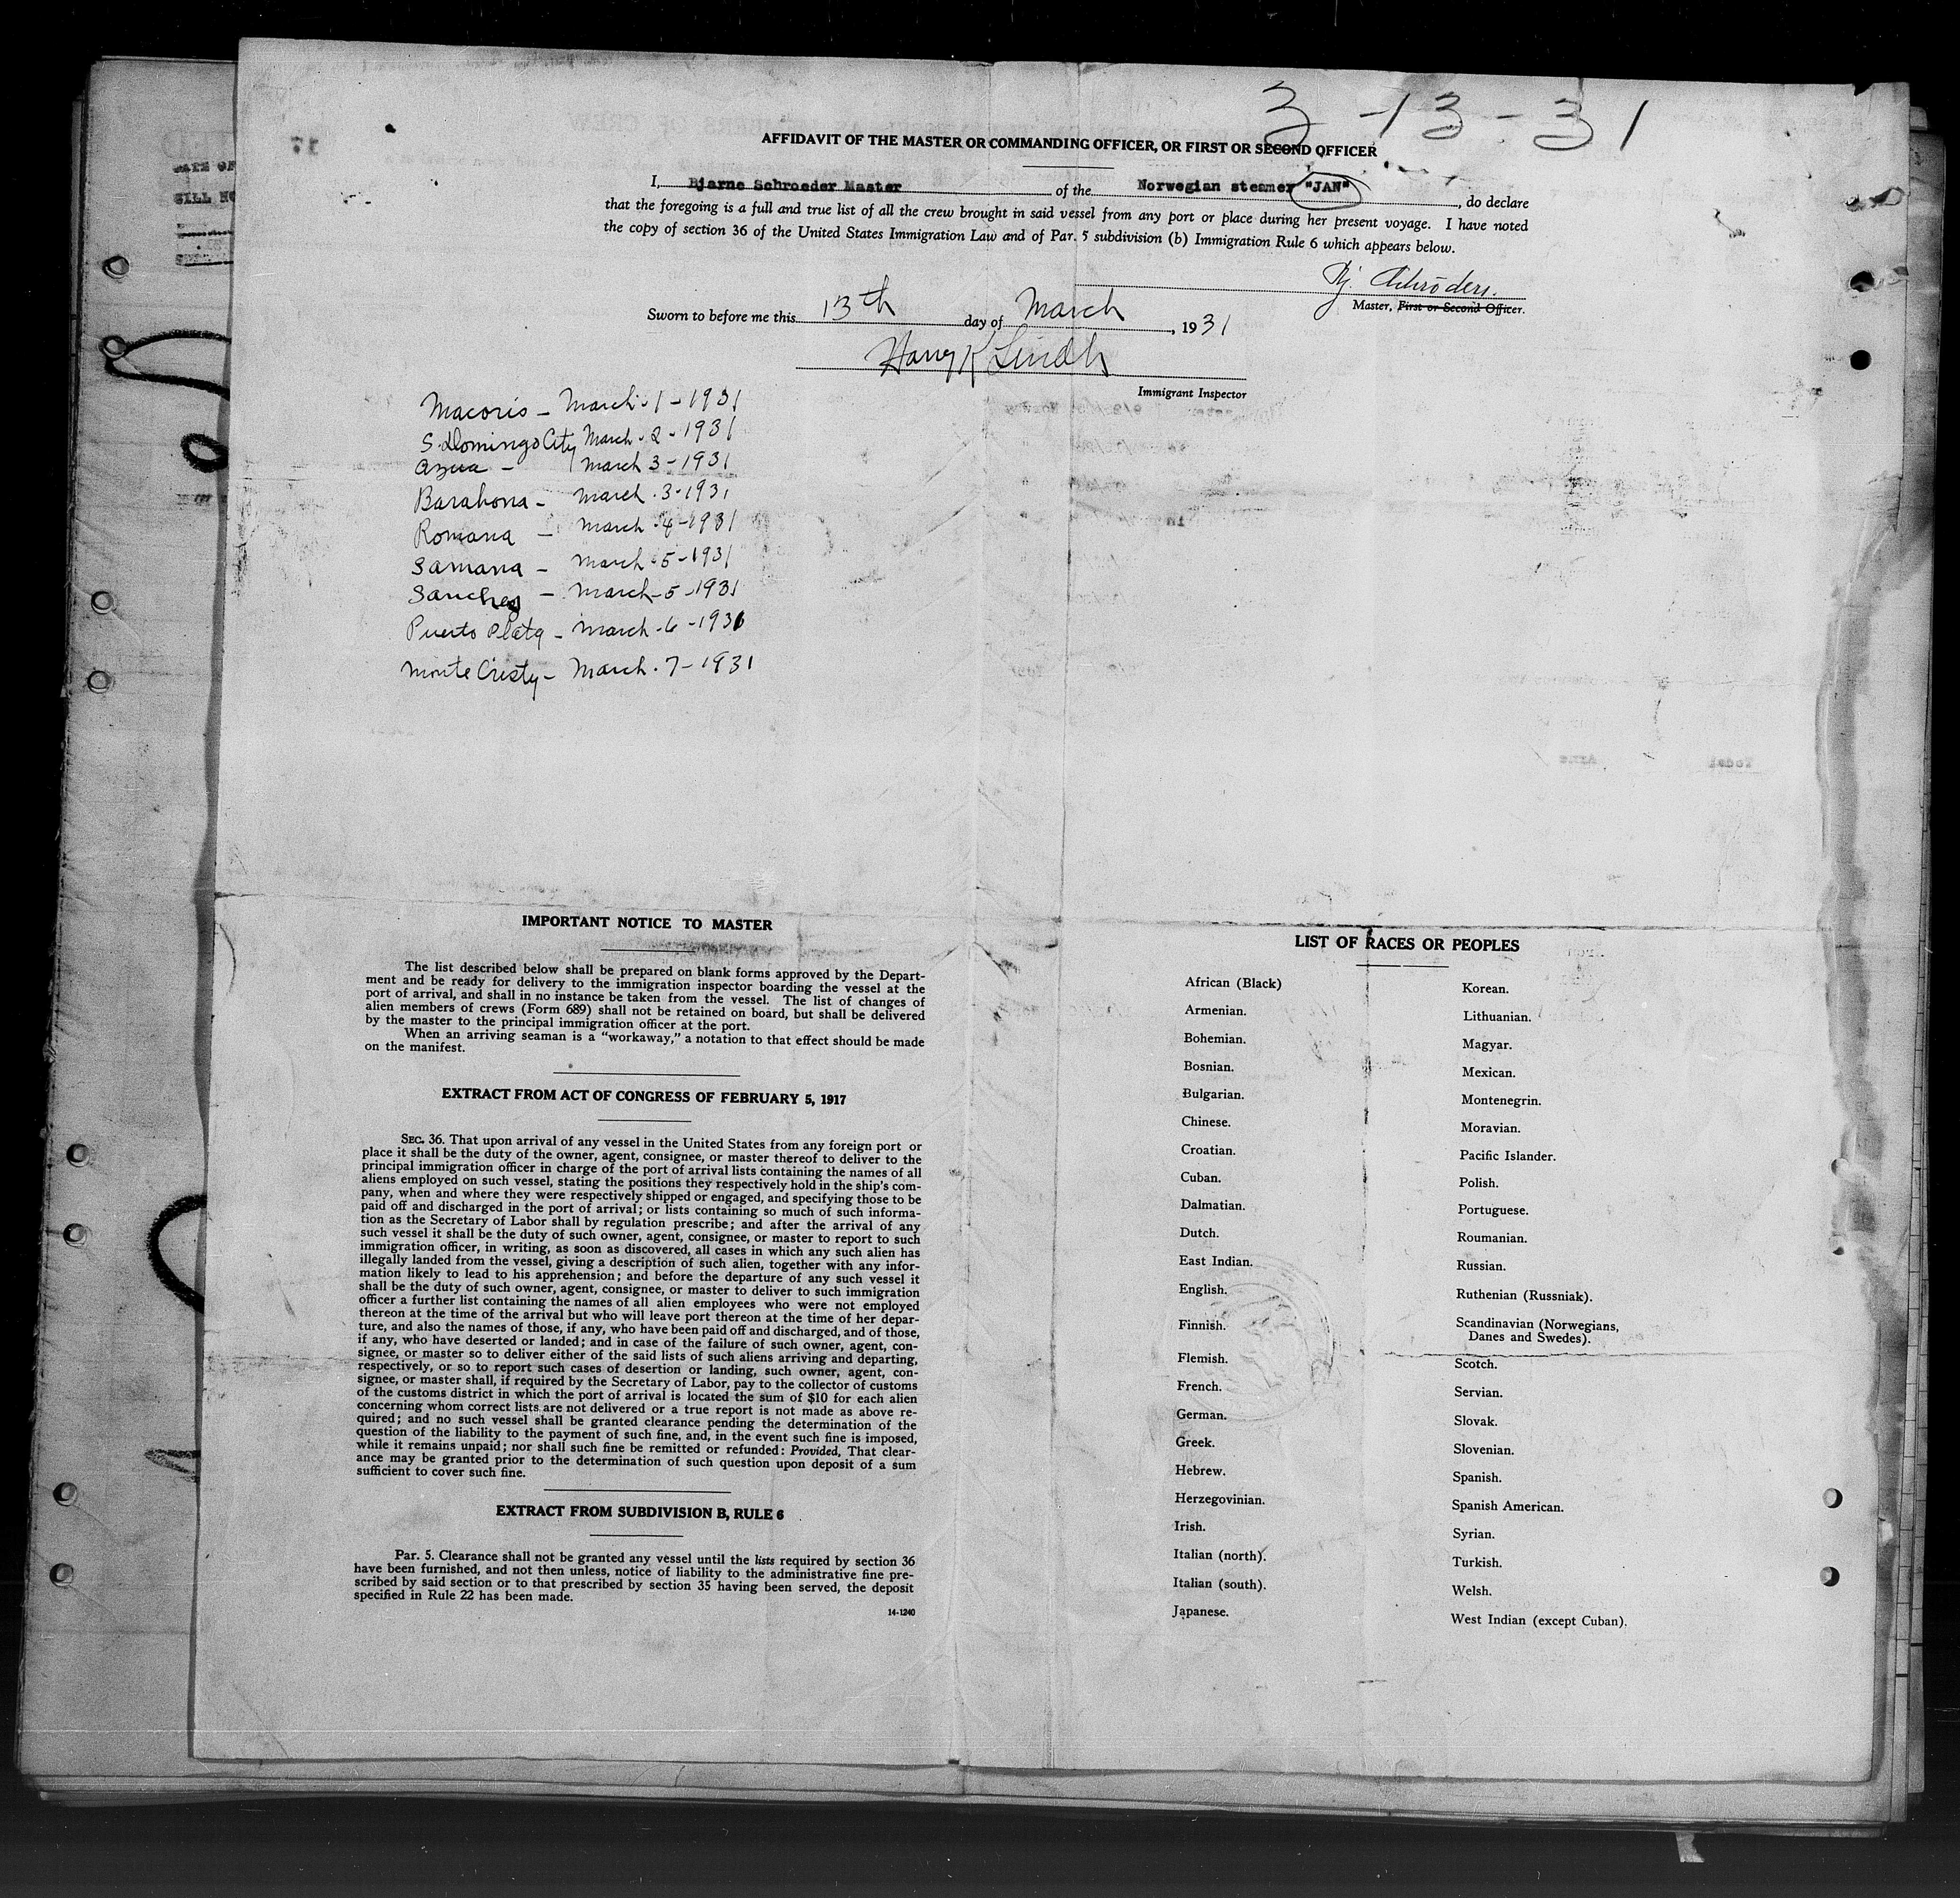 3-13-31
17
AFFIDAVIT OF THE MASTER OR COMMANDING OFFICER, OR FIRST OR SECOND OFFICER
I, Bjarne Schroeder Master of the Norwegian steamer "JAN", do declare
that the foregoing is a full and true list of all the crew brought in said vessel from any port or place during her present voyage. I have noted
the copy of section 36 of the United States Immigration Law and of Par. 5 subdivision (b) Immigration Rule 6 which appears below.
Bj. Schröder.
Master, First or Second Officer.
Sworn to before me this 13th day of March, 1931
Harry K Lindh
Immigrant Inspector
Macoris - March - 1 - 1931
S. Domingo City March - 2 - 1931
Azua - March 3 - 1931
Barahona - March - 3 - 1931
Romana - March - 4 - 1931
Samana - March - 5 - 1931
Sanchez - March - 5 - 1931
Puerto Plata - March - 6 - 1931
Monte Cristy - March - 7 - 1931
IMPORTANT NOTICE TO MASTER
The list described below shall be prepared on blank forms approved by the Depart-
ment and be ready for delivery to the immigration inspector boarding the vessel at the
port of arrival, and shall in no instance be taken from the vessel. The list of changes of
alien members of crews (Form 689) shall not be retained on board, but shall be delivered
by the master to the principal immigration officer at the port.
When an arriving seaman is a "workaway," a notation to that effect should be made
on the manifest.
EXTRACT FROM ACT OF CONGRESS OF FEBRUARY 5, 1917
SEC. 36. That upon arrival of any vessel in the United States from any foreign port or
place it shall be the duty of the owner, agent, consignee, or master thereof to deliver to the
principal immigration officer in charge of the port of arrival lists containing the names of all
aliens employed on such vessel, stating the positions they respectively hold in the ship's com-
pany, when and where they were respectively shipped or engaged, and specifying those to be
paid off and discharged in the port of arrival; or lists containing so much of such informa-
tion as the Secretary of Labor shall by regulation prescribe; and after the arrival of any
such vessel it shall be the duty of such owner, agent, consignee, or master to report to such
immigration officer, in writing, as soon as discovered, all cases in which any such alien has
illegally landed from the vessel, giving a description of such alien, together with any infor-
mation likely to lead to his apprehension; and before the departure of any such vessel it
shall be the duty of such owner, agent, consignee, or master to deliver to such immigration
officer a further list containing the names of all alien employees who were not employed
thereon at the time of the arrival but who will leave port thereon at the time of her depar-
ture, and also the names of those, if any, who have been paid off and discharged, and of those,
if any, who have deserted or landed; and in case of the failure of such owner, agent, con-
signee, or master so to deliver either of the said lists of such aliens arriving and departing,
respectively, or so to report such cases of desertion or landing, such owner, agent, con-
signee, or master shall, if required by the Secretary of Labor, pay to the collector of customs
of the customs district in which the port of arrival is located the sum of $10 for each alien
concerning whom correct lists are not delivered or a true report is not made as above re-
quired; and no such vessel shall be granted clearance pending the determination of the
question of the liability to the payment of such fine, and, in the event such fine is imposed,
while it remains unpaid; nor shall such fine be remitted or refunded: Provided, That clear-
ance may be granted prior to the determination of such question upon deposit of a sum
sufficient to cover such fine.
EXTRACT FROM SUBDIVISION B, RULE 6
Par. 5. Clearance shall not be granted any vessel until the lists required by section 36
have been furnished, and not then unless, notice of liability to the administrative fine pre-
scribed by said section or to that prescribed by section 35 having been served, the deposit
specified in Rule 22 has been made.
14-1240
LIST OF RACES OR PEOPLES
African (Black)
Armenian.
Bohemian.
Bosnian.
Bulgarian.
Chinese.
Croatian.
Cuban.
Dalmatian.
Dutch.
East Indian.
English.
Finnish.
Flemish.
French.
German.
Greek.
Hebrew.
Herzegovinian.
Irish.
Italian (north).
Italian (south).
Japanese.
Korean.
Lithuanian.
Magyar.
Mexican.
Montenegrin.
Moravian.
Pacific Islander.
Polish.
Portuguese.
Roumanian.
Russian.
Ruthenian (Russniak).
Scandinavian (Norwegians,
Danes and Swedes).
Scotch.
Servian.
Slovak.
Slovenian.
Spanish.
Spanish American.
Syrian.
Turkish.
Welsh.
West Indian (except Cuban).